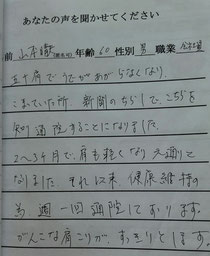 あなたの声を聞かせてください
前 山本 年齢 60 性別 男 職業 会社員
五十肩でうでがあがらなくなり
こまっていた所、新聞のちらしで、こちらを
知り通院することになりました。
2〜3ヶ月で、肩も軽くなり元通りに
なりました。それ以来、健康維持の
為週一回通院しております。
がんこな肩こりが、すっきりとします。